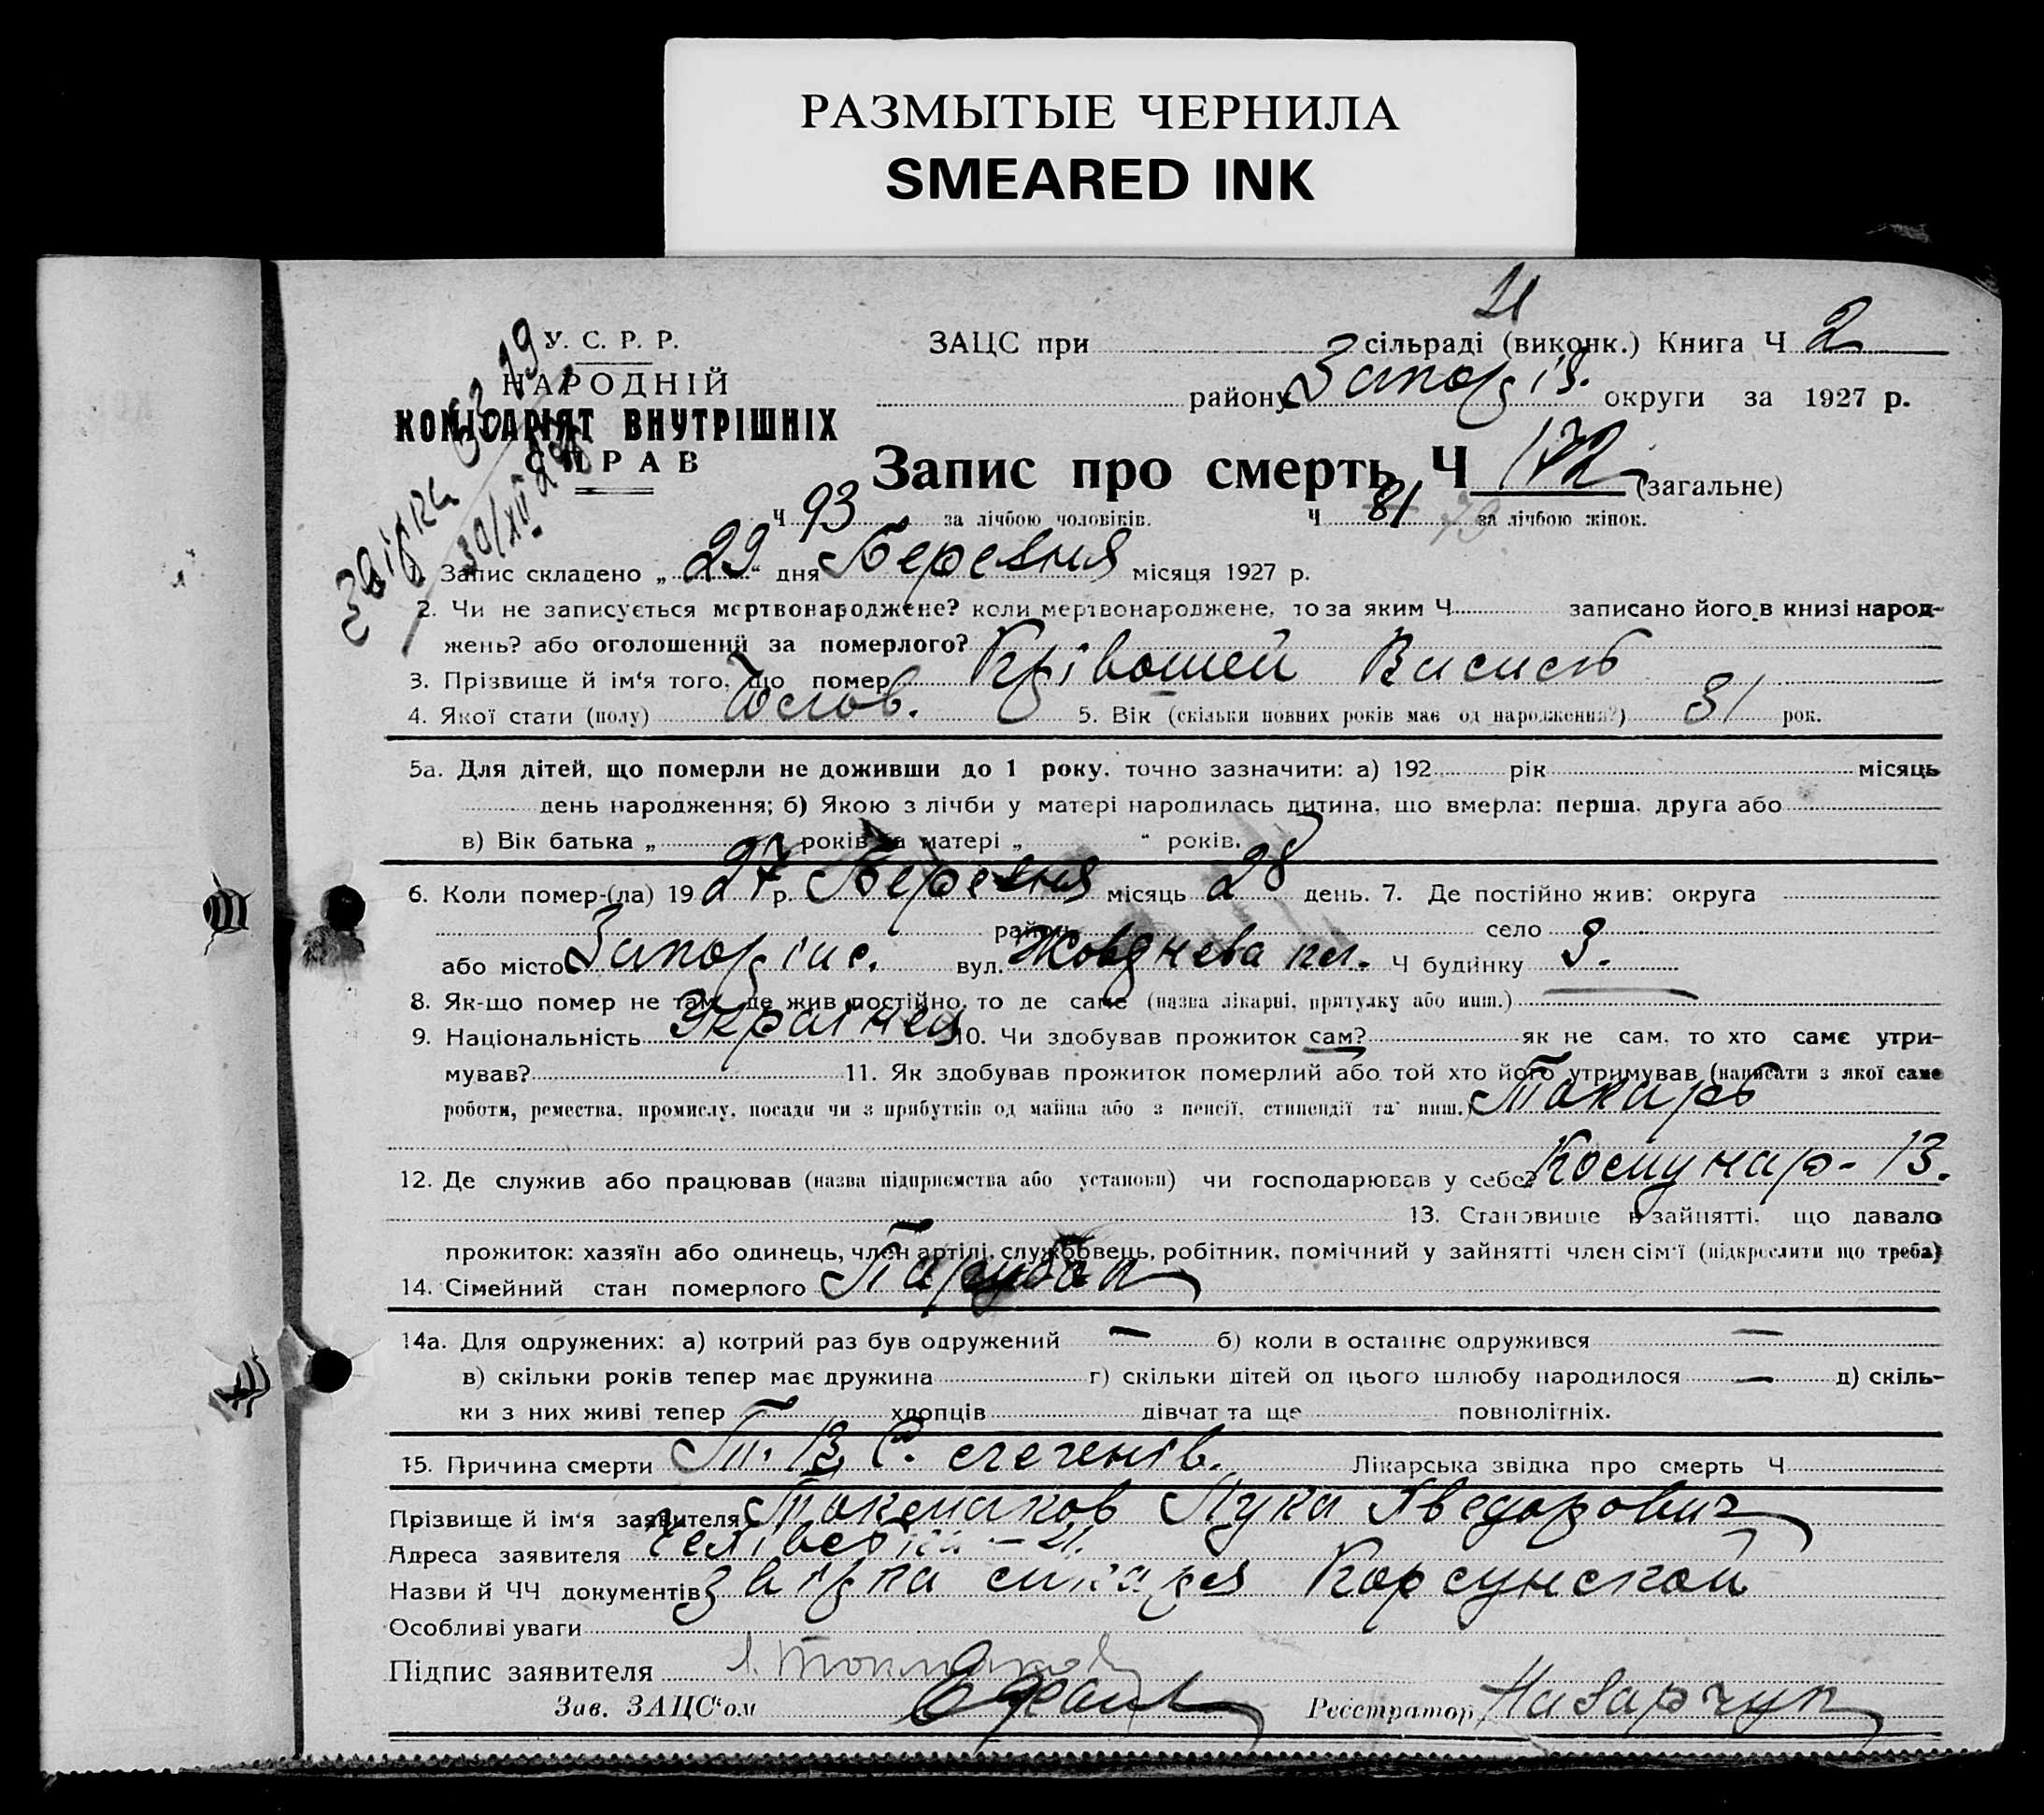 РАЗМЫТЫЕ ЧЕРНИЛА
SMEARED INK
21
У. С. Р. Р.
НАРОДНІЙ
КОМІСАРІЯТ ВНУТРІШНІХ
СПРАВ
ЗАЦС при сільраді (виконк.) Книга Ч 2
району Запоріз. округи за 1927 р.
Запис про смерть Ч 172 (загальне)
Ч 93 за лічбою чоловіків. Ч 81 79 за лічбою жінок.
30/XII
Запис складено „ 29 “ дня Березня місяця 1927 р.
2. Чи не записується мертвонароджене? коли мертвонароджене, то за яким Ч записано його в книзі народ-
жень? або оголошений за померлого?
3. Прізвище й ім‘я того, що помер Крівошей Василь
4. Якої стати (полу) Чолов. 5. Вік (скільки повних років має од народження?) 31 рок.
5а. Для дітей, що померли не доживши до 1 року, точно зазначити: а) 192 рік місяць
день народження; б) Якою з лічби у матері народилась дитина, що вмерла: перша, друга або
в) Вік батька „ років та матері „ “ років.
6. Коли помер-(ла) 1927 р. Березня місяць 28 день. 7. Де постійно жив: округа
район село
або місто Запоріж. вул. Жовднева пл. Ч будинку 3.
8. Як-що помер не там, де жив постійно, то де саме (назва лікарні, притулку або инш.)
9. Національність Українец 10. Чи здобував прожиток сам? як не сам, то хто саме утри-
мував? 11. Як здобував прожиток померлий або той хто його утримував (написати з якої саме
роботи, ремества, промислу, посади чи з прибутків од майна або з пенсії, стипендії та инш.) Токарь
12. Де служив або працював (назва підприємства або установи) чи господарював у себе? Комунар-13.
13. Становище в зайнятті, що давало
прожиток: хазяїн або одинець, член артілі, службовець, робітник, помічний у зайнятті член сім‘ї (підкреслити що треба)
14. Сімейний стан померлого Парубок
14а. Для одружених: а) котрий раз був одружений — б) коли в останнє одружився —
в) скільки років тепер має дружина г) скільки дітей од цього шлюбу народилося — д) скіль-
ки з них живі тепер хлопців дівчат та ще повнолітніх.
15. Причина смерти Т. В. С. легенів. Лікарська звідка про смерть Ч
Прізвище й ім‘я заявителя Токмаков Лука Хведорович
Адреса заявителя 21.
Назви й ЧЧ документів звідка Корсунской
Особливі уваги
Підпис заявителя Л. Токмаков
Зав. ЗАЦС‘ом Реєстратор Назарчук